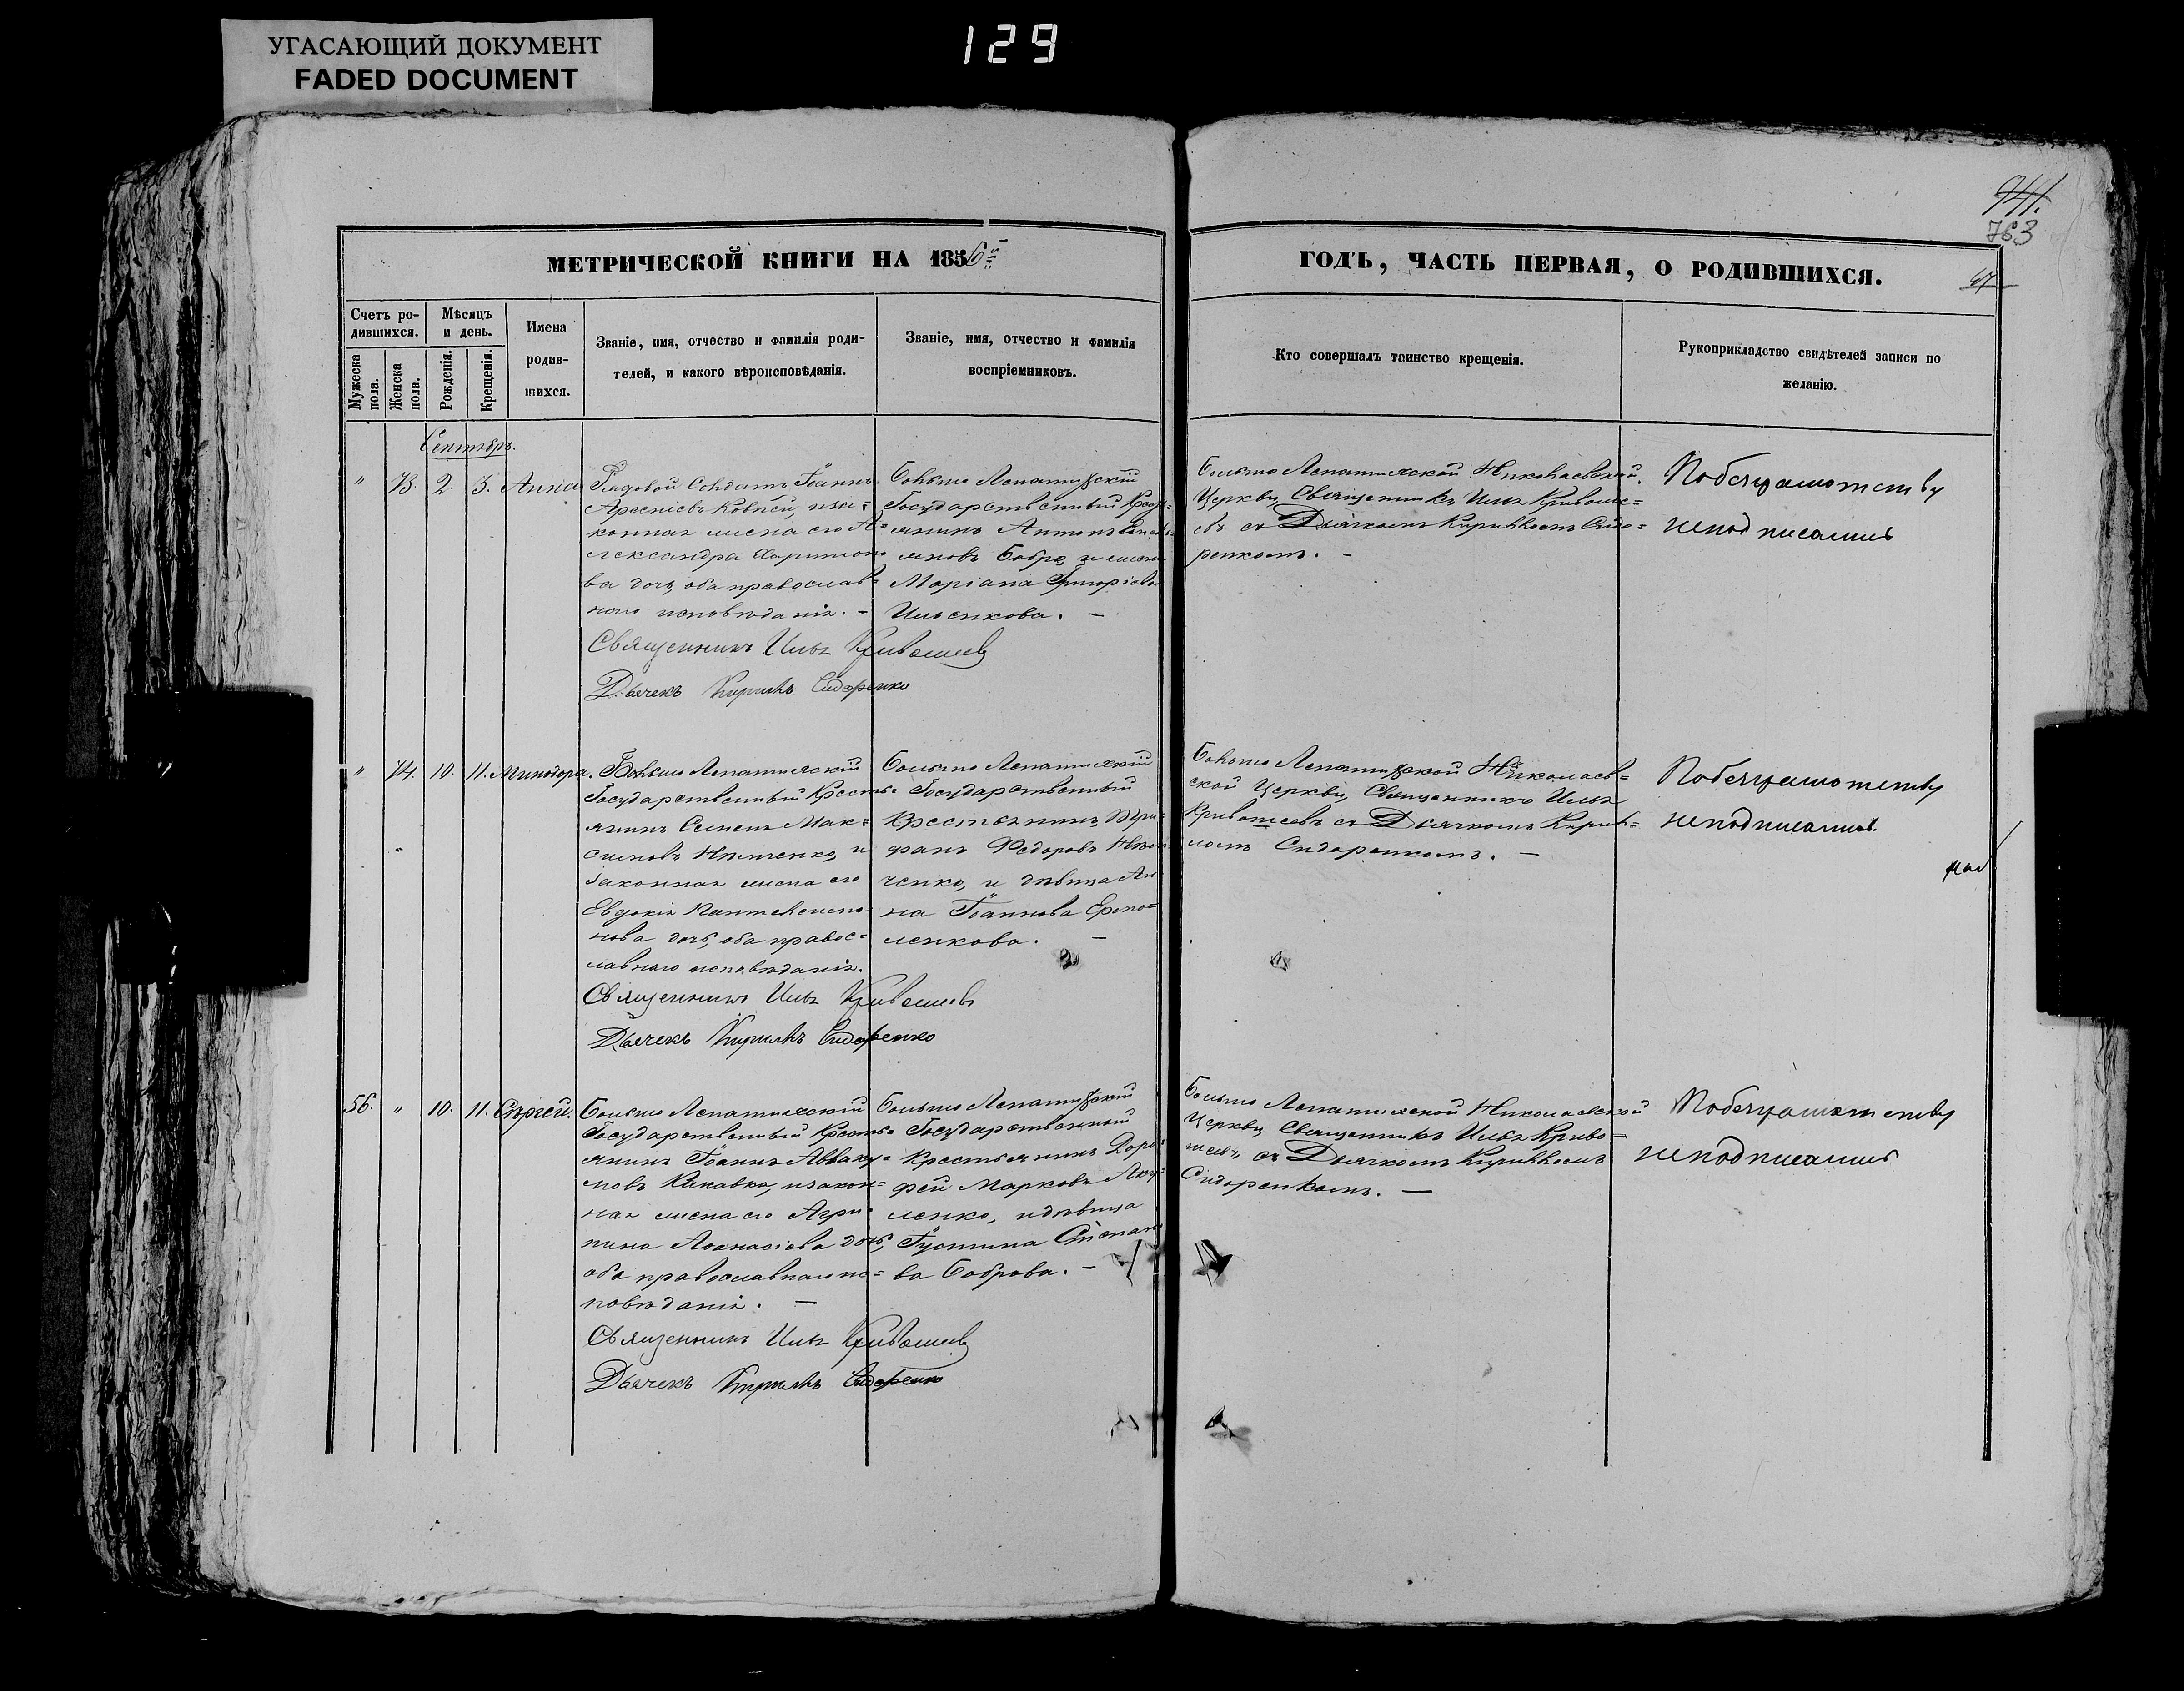 УГАСАЮЩИЙ ДОКУМЕНТ
FADED DOCUMENT
129
763
МЕТРИЧЕСКОЙ КНИГИ НА 1856й
ГОДЪ, ЧАСТЬ ПЕРВАЯ, О РОДИВШИХСЯ.
67
Счетъ ро-
дившихся.
Мужеска
пола.
Женска
пола.
Мѣсяцъ
и день.
Рожденія.
Крещенія.
Имена
родив-
шихся.
Званіе, имя, отчество и фамилія роди-
телей, и какого вѣроисповѣданія.
Званіе, имя, отчество и фамилія
воспріемниковъ.
Кто совершалъ таинство крещенія.
Рукоприкладство свидѣтелей записи по
желанію.
Сентябрь.
" 73. 2. 3. Анна
Рядовой Солдатъ Іоаннъ
Арсеніевъ Ковпей, иза=
конная жена его А=
лександра Харитоно
ва дочь, оба православ=
наго исповѣданія. –
Священникъ Илья Кривошеев
Дьячекъ Кирилъ Сидоренко
Больше Лепатихский
Государственный Крест=
янинъ Антонъ
яновъ Бобръ, и жена
Маріана Григоріева
Ильенкова. –
Больше Лепатихской Николаевской
Церкви, Священникъ Илья Кривоше=
евъ съ Дьячкомъ Кириломъ Сидо=
ренкомъ. –
Побезграмотству
неподписались
" 74. 10. 11. Минодора.
Больше Лепатихский
Государственный Кресть=
янинъ Семенъ Мак=
симовъ Нитченко, и
законная жена его
Евдокія Пантелеимо=
нова дочь, оба правос=
лавнаго исповѣданія.
Священникъ Илья Кривошеевъ
Дьячекъ Кирилъ Сидоренко
Больше Лепатихский
Государственный
Крестьянинъ
фанъ Федоровъ
ченко, и дѣвица Ан
на Іоаннова Ермо=
ленкова. –
Больше Лепатихской Николаев=
ской Церкви, Священникъ Илья
Кривошеевъ съ Дьячкомъ Кирил=
ломъ Сидоренкомъ. –
Побезграмотству
неподписались.
56. " 10. 11. Сергѣй.
Больше Лепатихский
Государственный Кресть=
янинъ Іоаннъ Авваку=
мовъ Какавка, изакон=
ная жена его Агри=
пина Аѳанасіева дочь,
оба православнаго ис=
повѣданія. –
Священникъ Илья Кривошеев
Дьячекъ Кирилъ Сидоренко
Больше Лепатихский
Государственной
Крестьянинъ Доро=
фей Марковъ Аку=
ленко, и дѣвица
Іустина Степано
ва Боброва. –
Больше Лепатихской Николаевской
Церкви, Священникъ Илья Криво=
шеевъ съ Дьячкомъ Кириломъ
Сидоренкомъ. –
Побезграмотству
неподписались